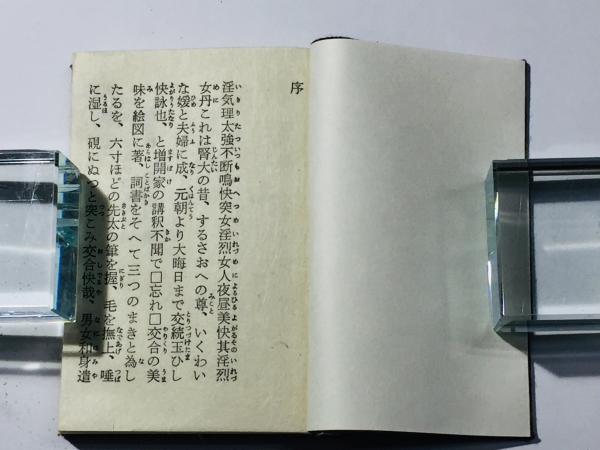 序
淫気理太強不断鳴快突女淫烈女人夜昼美快其淫烈
女丹これは腎大の昔、するさおへの尊、いくわい
な媛と夫婦に成、元朝より大晦日まで交続玉ひし
快詠也、と増開家の講釈不聞で□忘れ□交合の美
味を絵図に著、詞書をそへて三つのまきと為し
たるを、六寸ほどの先太の筆を握、毛を撫上、唾
に湿し、硯にぬつと突こみ交合快哉、男女和身遣